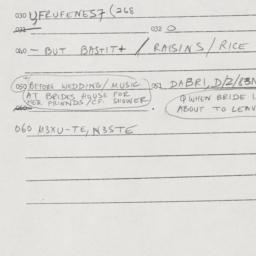 030 YFRUFENE57 (268
032 O
040 - BUT BASTIT+ / RAISINS / RICE
050 BEFORE WEDDING / MUSIC
AT BRIDES HOUSE FOR
HER FRIENDS / CF. SHOWER
052 DABRI, D/2/
Q WHEN BRIDE
ABOUT TO LEAV
060 M3XU-TE, N3STE